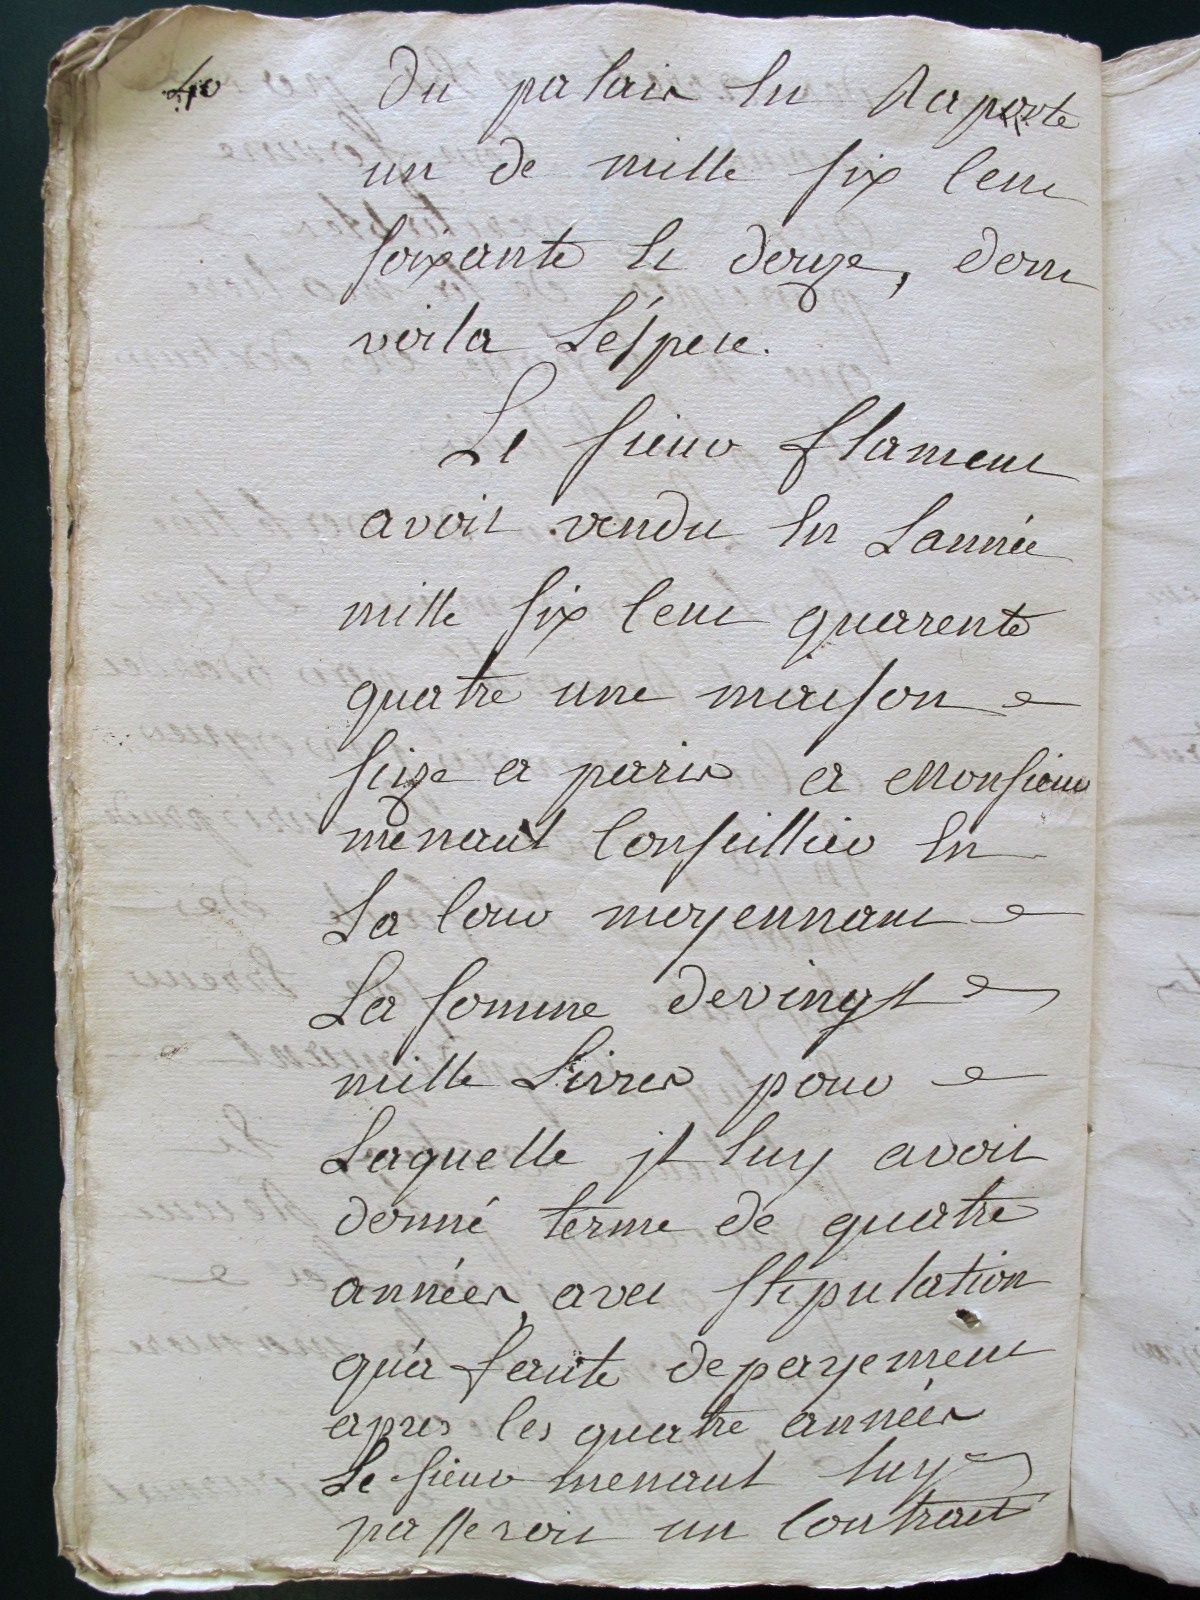 40
du palais en raporte
un de mille six cent
soixante et douze, dont
voila L'éspece.
Le sieur flament
avoit vendu en Lannée
mille six cent quarente
quatre une maison
size a paris a Monsieur
menant Conseillier en
La Cour moyennant
La somme devingt
mille Livres pour
Laquelle jl luy avoit
donné terme de quatre
années, avec stipulation
qu'a faute depayement
apres les quatre années
Le sieur menant luy
passeroit un Contract